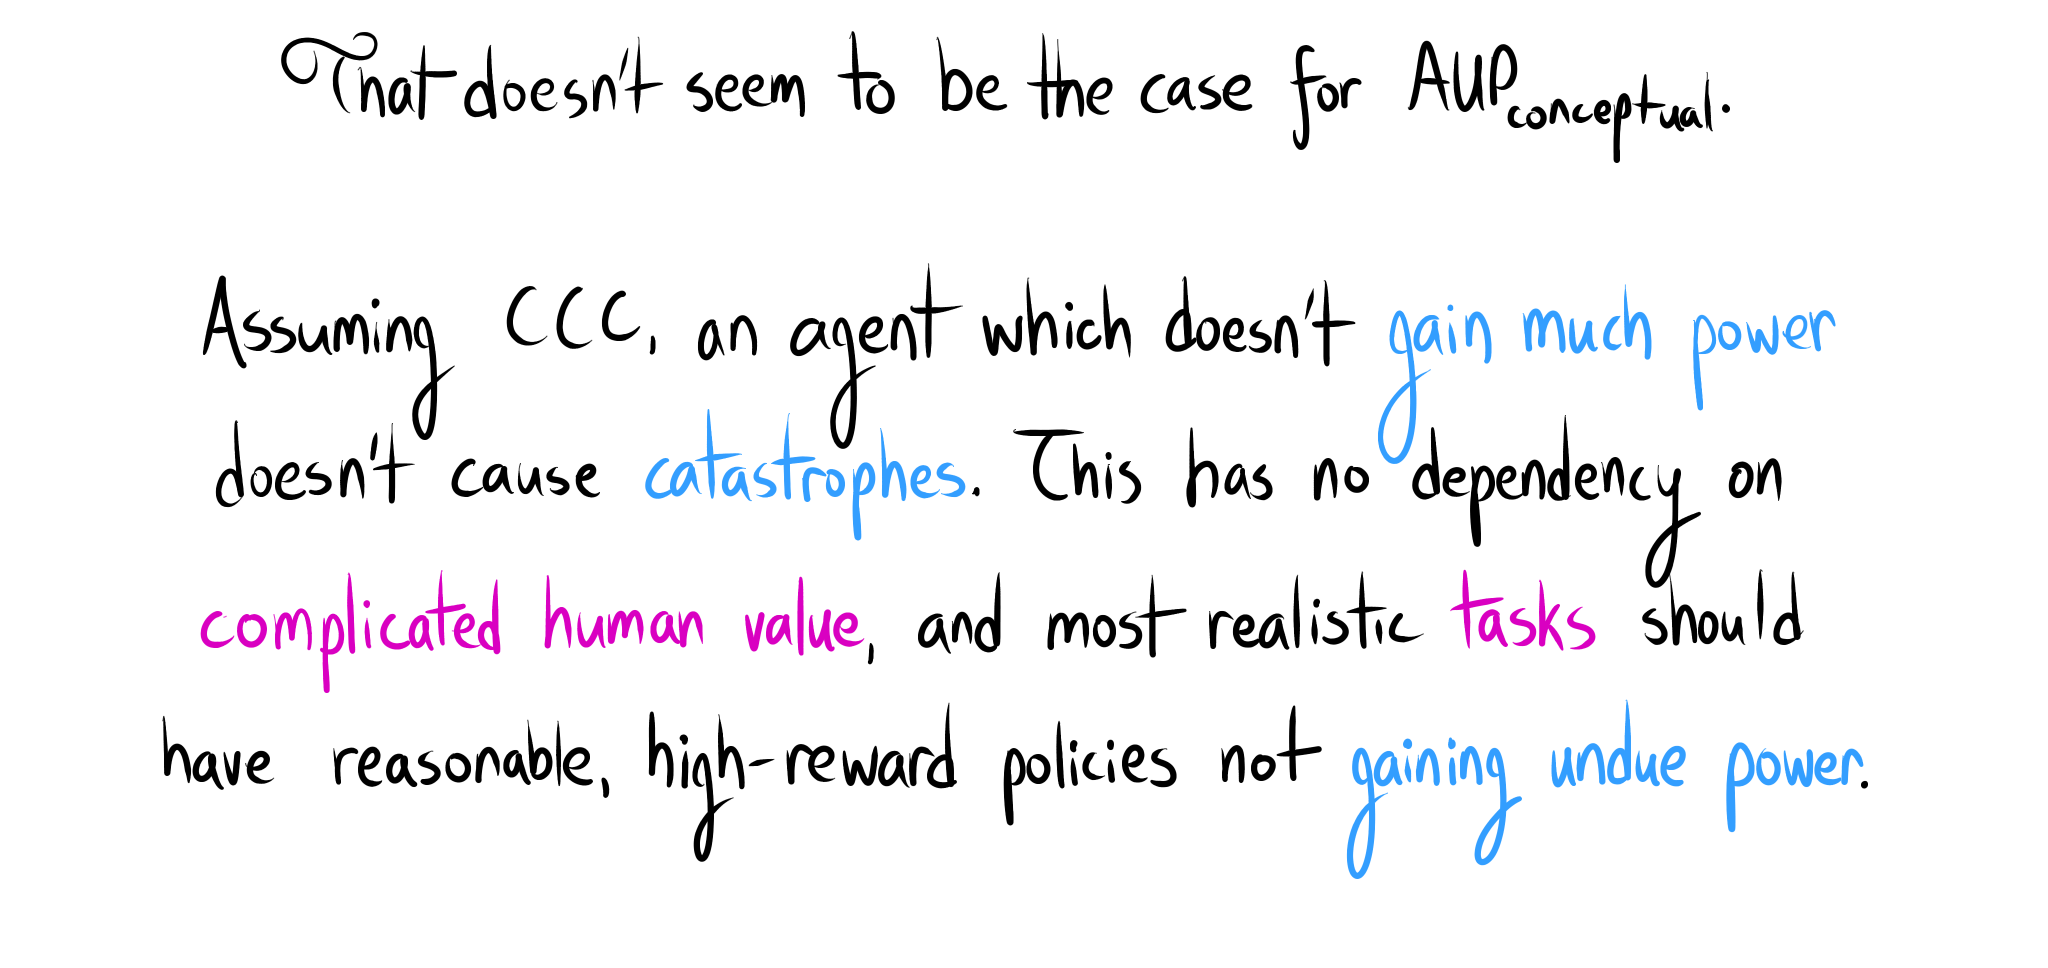 That doesn't seem to be the case for AUPconceptual.
Assuming CCC, an agent which doesn't gain much power
doesn't cause catastrophes. This has no dependency on
complicated human value, and most realistic tasks should
have reasonable, high-reward policies not gaining undue power.